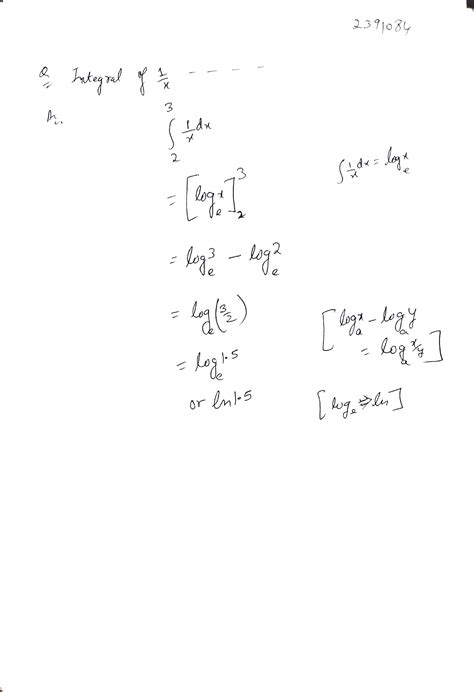 2391084
Q Integral of 1/x - - - - -
An.
∫₂³ 1/x dx
∫ 1/x dx = logₑx
= [logₑx]₂³
= logₑ3 - logₑ2
= logₑ(3/2)
[logₐx - logₐy
= logₐx/y]
= logₑ1.5
or ln1.5
[logₑ ⇒ ln]